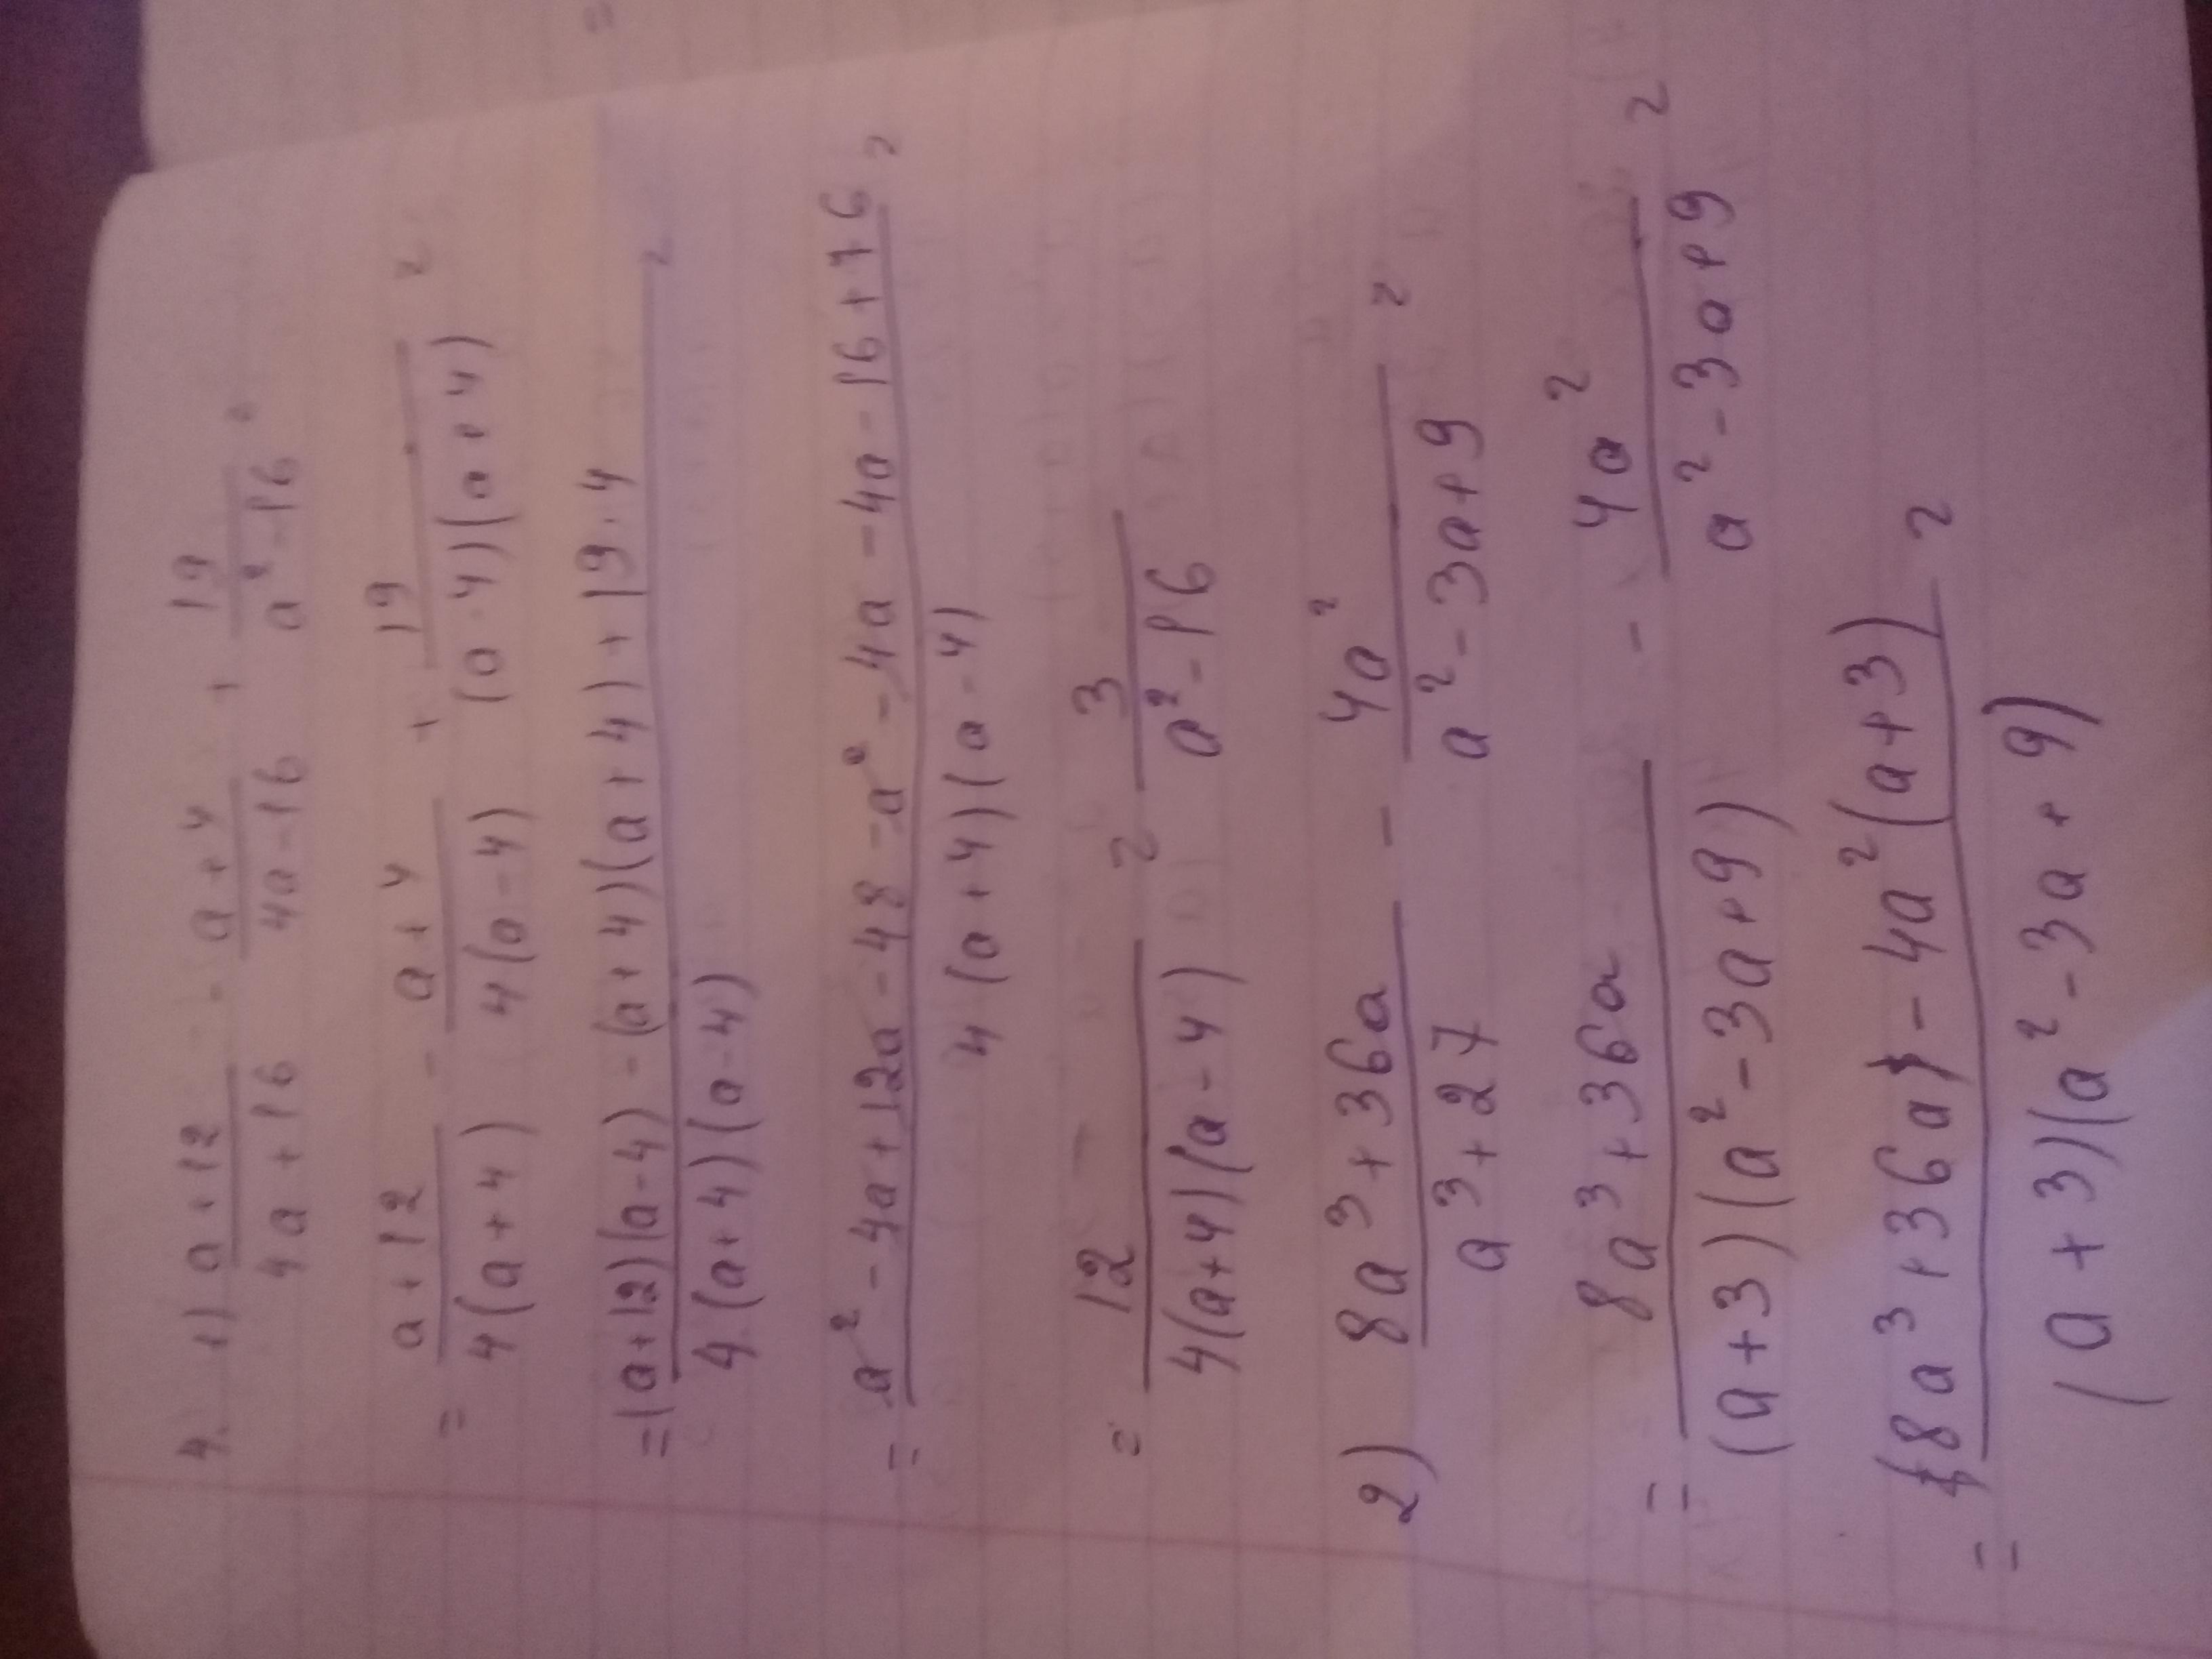 4. 1) (a+12)/(4a+16) - (a+4)/(4a-16) + 19/(a²-16) =
= (a+12)/(4(a+4)) - (a+4)/(4(a-4)) + 19/((a-4)(a+4)) =
= ((a+12)(a-4) - (a+4)(a+4) + 19·4)/(4(a+4)(a-4)) =
= (a² - 4a + 12a - 48 - a² - 4a - 4a - 16 + 76)/(4(a+4)(a-4)) =
= 12/(4(a+4)(a-4)) = 3/(a²-16)
2) (8a³+36a)/(a³+27) - 4a²/(a²-3a+9) =
= (8a³+36a)/((a+3)(a²-3a+9)) - 4a²/(a²-3a+9) =
= (8a³+36a - 4a²(a+3))/((a+3)(a²-3a+9)) =